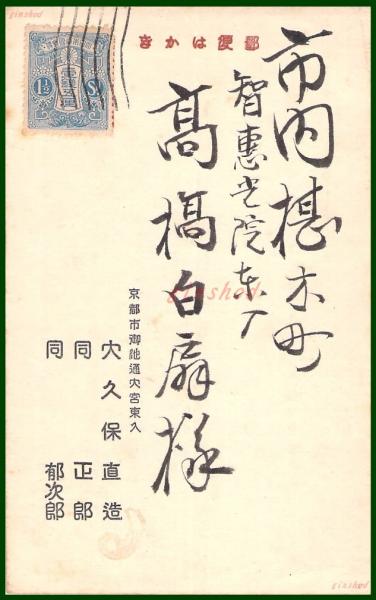 郵便はかき
市内椹木町
智惠光院東入
高橋白扇様
京都市御池通大宮東入
穴久保直造
同 正郎
同 郁次郎
1½ Sn
ginshod
ginshod
ginshod